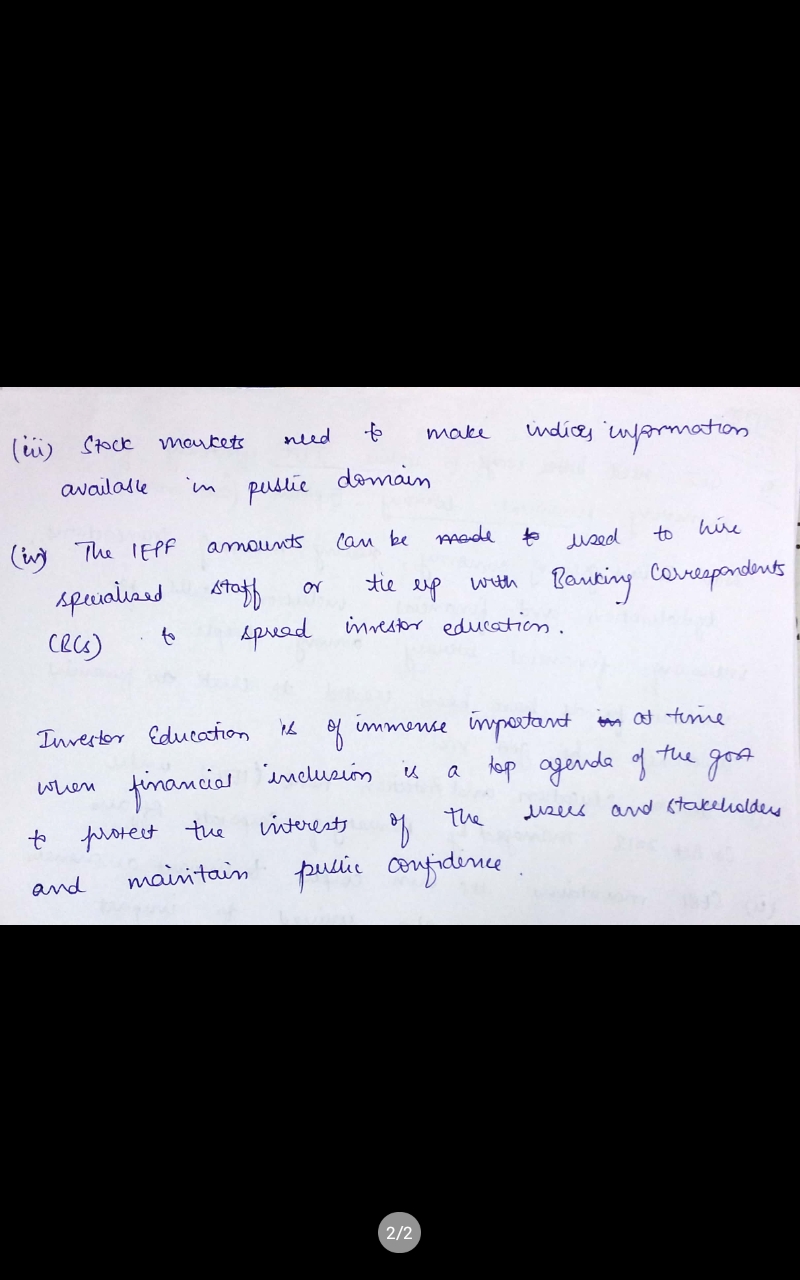 (iii) Stock markets need to make indices information
available in public domain
(iv) The IEPF amounts can be made to used to hire
specialised staff or tie up with Banking Correspondents
(BCs) to spread investor education.
Investor Education is of immense important in at time
when financial inclusion is a top agenda of the govt
to protect the interests of the users and stakeholders
and maintain public confidence.
2/2